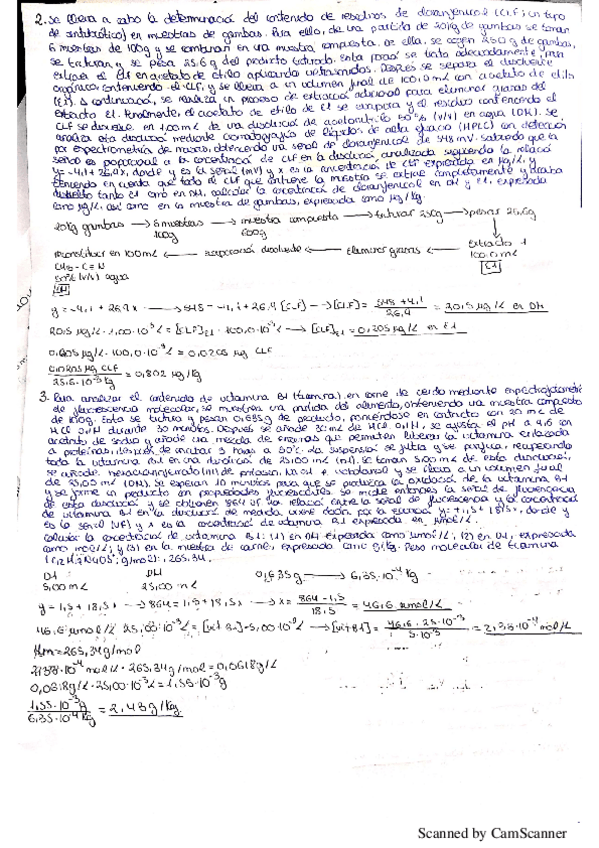 2. Se lleva a cabo la determinación del contenido de residuos de cloranfenicol (CLF; un tipo
de antibiótico) en muestras de gambas. Para ello, de una partida de 20 kg de gambas se toman
6 muestras de 100g y se combinan en una muestra compuesta. De ella, se cogen 250 g de gambas,
se trituran y se pesa 25.6 g del producto triturado. Esta porción se trata adecuadamente para
extraer el CLF en acetato de etilo aplicando ultrasonidos. Después se separa el disolvente
orgánico conteniendo el CLF, y se lleva a un volumen final de 100.0 mL con acetato de etilo
(E1). A continuación, se realiza un proceso de extracción adicional para eliminar grasas del
extracto E1. Finalmente, el acetato de etilo de E1 se evapora y el residuo conteniendo el
CLF se disuelve en 1.00 mL de una disolución de acetonitrilo 50% (v/v) en agua (DM). Se
analiza esta disolución mediante cromatografía de líquidos de alta eficacia (HPLC) con detección
por espectrometría de masas, obteniendo una señal de cloranfenicol de 548 mV. Sabiendo que la
señal es proporcional a la concentración de CLF en la disolución analizada siguiendo la relación
y = -4,1 + 26,9x, donde y es la señal (mV) y x es la concentración de CLF expresada en µg/L, y
teniendo en cuenta que todo el CLF que contiene la muestra se extrae completamente y acaba
tanto en E1 como en DM, calcular la concentración de cloranfenicol en DM y E1, expresada
como µg/L, así como en la muestra de gambas, expresada como µg/kg.
20 kg gambas → 6 muestras → muestra compuesta → triturar 250g → pesar 25.6g
100g 600g
reconstituir en 1.00 mL ← evaporación disolvente ← eliminar grasas ← Extracto 1
100.0 mL
CH3-C≡N E1
50% (v/v) agua
DM
y = -4,1 + 26,9x → 548 = -4,1 + 26,9 [CLF] → [CLF] = 548 + 4,1 / 26,9 = 20,5 µg/L en DM
20,5 µg/L · 1,00·10⁻³L = [CLF]E1 · 100,0·10⁻³L → [CLF]E1 = 0,205 µg/L en E1
0,205 µg/L · 100,0·10⁻³L = 0,0205 µg CLF
0,0205 µg CLF / 25.6·10⁻³kg = 0,802 µg/kg
3. Para analizar el contenido de vitamina B1 (tiamina) en carne de cerdo mediante espectrofotometría
de fluorescencia molecular, se muestrea una partida del alimento, obteniendo una muestra compuesta
de 810g. Esta se tritura y pesan 0,635g de producto, poniéndose en contacto con 20 mL de
HCl 0,1M durante 30 minutos. Después se añade 30 mL de HCl 0,1M, se ajusta el pH a 4,5 con
acetato de sodio y añade una mezcla de enzimas que permiten liberar la vitamina enlazada
a proteínas. Después de incubar 3 horas a 50°C la suspensión se filtra y se purifica, recuperando
toda la vitamina B1 en una disolución de 25,00 mL (D1). Se toman 5,00 mL de esta disolución,
se añade hexacianoferrato(III) de potasio, NaOH e isobutanol y se lleva a un volumen final
de 25,00 mL (DM). Se esperan 10 minutos para que se produzca la oxidación de la vitamina B1
y se forme un producto con propiedades fluorescentes. Se mide entonces la señal de fluorescencia
de esta disolución y se obtienen 864 UF. La relación entre la señal de fluorescencia y la concentración
de vitamina B1 en la disolución de medida viene dada por la ecuación y = 1,5 + 18,5x, donde y
es la señal (UF) y x es la concentración de vitamina B1 expresada en µmol/L.
Calcular la concentración de vitamina B1: (1) en DM expresada como µmol/L; (2) en D1, expresada
como mol/L; y (3) en la muestra de carne, expresada como g/kg. Peso molecular de tiamina
(C12H17N4OS; g/mol): 265,34.
D1 DM 0,635g → 6,35·10⁻⁴ kg
5,00 mL 25,00 mL
y = 1,5 + 18,5x → 864 = 1,5 + 18,5x → x = 864 - 1,5 / 18,5 = 46,6 µmol/L
46,6 µmol/L · 25,00·10⁻³L = [vit B1]·5,00·10⁻³L → [vit B1] = 46,6 · 25·10⁻³ / 5·10⁻³ = 2,33·10⁻⁴ mol/L
Mm = 265,34 g/mol
2,33·10⁻⁴ mol/L · 265,34 g/mol = 0,0618 g/L
0,0618 g/L · 25,00·10⁻³L = 1,55·10⁻³g
1,55·10⁻³g / 6,35·10⁻⁴kg = 2,43 g/kg
Scanned by CamScanner